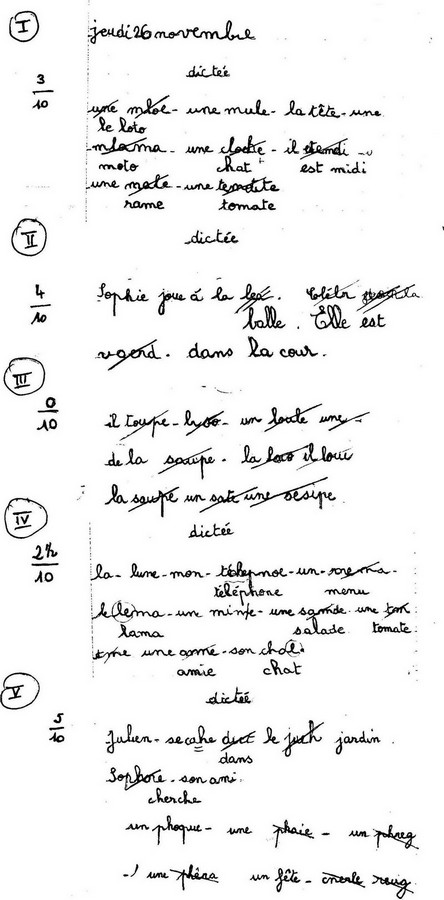 I jeudi 26 novembre
dictée
3/10
une mloe - une mule - la tête - une
le loto
mlama - une cloche - il etemdi - u
moto chat est midi
une mate - une temdite
rame tomate
II dictée
4/10 Sophie joue á la lea.
balle. Elle est
vaerd. dans la cour.
III
0/10 il toupe - lyoo - un loute une -
de la saupe - la loro il loui
la soupe un sate une sesipe
IV dictée
2½/10
la - lune - mon - un - rrema -
téléphone menu
le lema - une minfe - une samde une ton
lama salade tomate
une amé - son chal.
amie chat
V dictée
5/10
Julien - secahe dect le juh jardin.
dans
Sophore - son ami.
cherche
un phoque - une phaie - un phreg
une phêsa un fête - cnerle roug